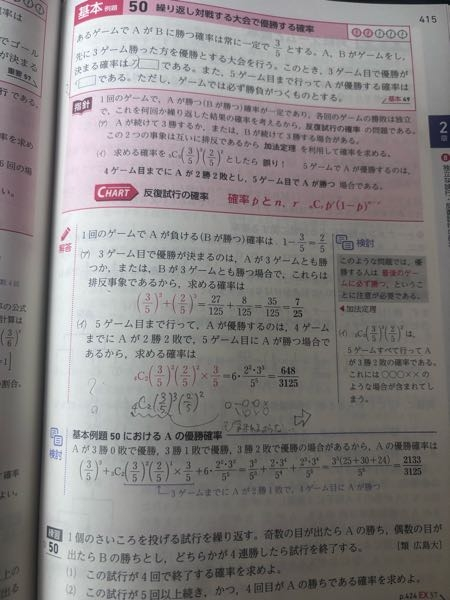 基本 例題 50 繰り返し対戦する大会で優勝する確率
415
あるゲームでAがBに勝つ確率は常に一定で3/5とする。A, Bがゲームをし,
先に3ゲーム勝った方を優勝とする大会を行う。このとき, 3ゲーム目で優勝が
決まる確率は□である。また, 5ゲーム目まで行ってAが優勝する確率は
□である。ただし, ゲームでは必ず勝負がつくものとする。
基本49
指針
1回のゲームで, Aが勝つ(Bが勝つ)確率が一定であり, 各回のゲームの勝敗は独立
で, これを何回か繰り返した結果の確率を考えるから, 反復試行の確率 の問題である。
(ア) Aが続けて3勝するか, または, Bが続けて3勝する場合がある。
この2つの事象は互いに排反であるから 加法定理 を利用して確率を求める。
(イ) 求める確率を ₅C₃(3/5)³(2/5)² としたら 誤り! 5ゲーム目でAが優勝するのは,
4ゲーム目までにAが2勝2敗とし, 5ゲーム目でAが勝つ 場合である。
CHART 反復試行の確率 確率pとn, r ₙCᵣpʳ(1-p)ⁿ⁻ʳ
解答
1回のゲームでAが負ける(Bが勝つ)確率は 1-3/5=2/5
(ア) 3ゲーム目で優勝が決まるのは, Aが3ゲームとも勝
つか, または, Bが3ゲームとも勝つ場合で, これらは
排反事象であるから, 求める確率は
(3/5)³+(2/5)³=27/125+8/125=35/125=7/25
(イ) 5ゲーム目まで行って, Aが優勝するのは, 4ゲーム
目までにAが2勝2敗で, 5ゲーム目にAが勝つ場合で
あるから, 求める確率は
₄C₂(3/5)²(2/5)²×3/5=6・2²・3³/5⁵=648/3125
検討
このような問題では, 優
勝する人は 最後のゲー
ムに必ず勝つ, というこ
とに注意が必要である。
◀加法定理
(イ) ₅C₃(3/5)³(2/5)²は,
5ゲームすべて行ってA
が3勝2敗の確率である。
これには○○○××の
ような場合が含まれてし
まう。
検討
基本例題50におけるAの優勝確率
Aが3勝0敗で優勝, 3勝1敗で優勝, 3勝2敗で優勝の場合があるから, Aの優勝確率は
(3/5)³+₃C₂(3/5)²(2/5)×3/5+6・2²・3³/5⁵=3³/5³+2・3⁴/5⁴+2³・3⁴/5⁵=3³(25+30+24)/5⁵=2133/3125
3ゲームまでにAが2勝1敗で, 4ゲーム目にAが勝つ
練習 50
1個のさいころを投げる試行を繰り返す。奇数の目が出たらAの勝ち, 偶数の目が
出たらBの勝ちとし, どちらかが4連勝したら試行を終了する。
[類 広島大]
(1) この試行が4回で終了する確率を求めよ。
(2) この試行が5回以上続き, かつ, 4回目がAの勝ちである確率を求めよ。
p.424 EX 37
2
章